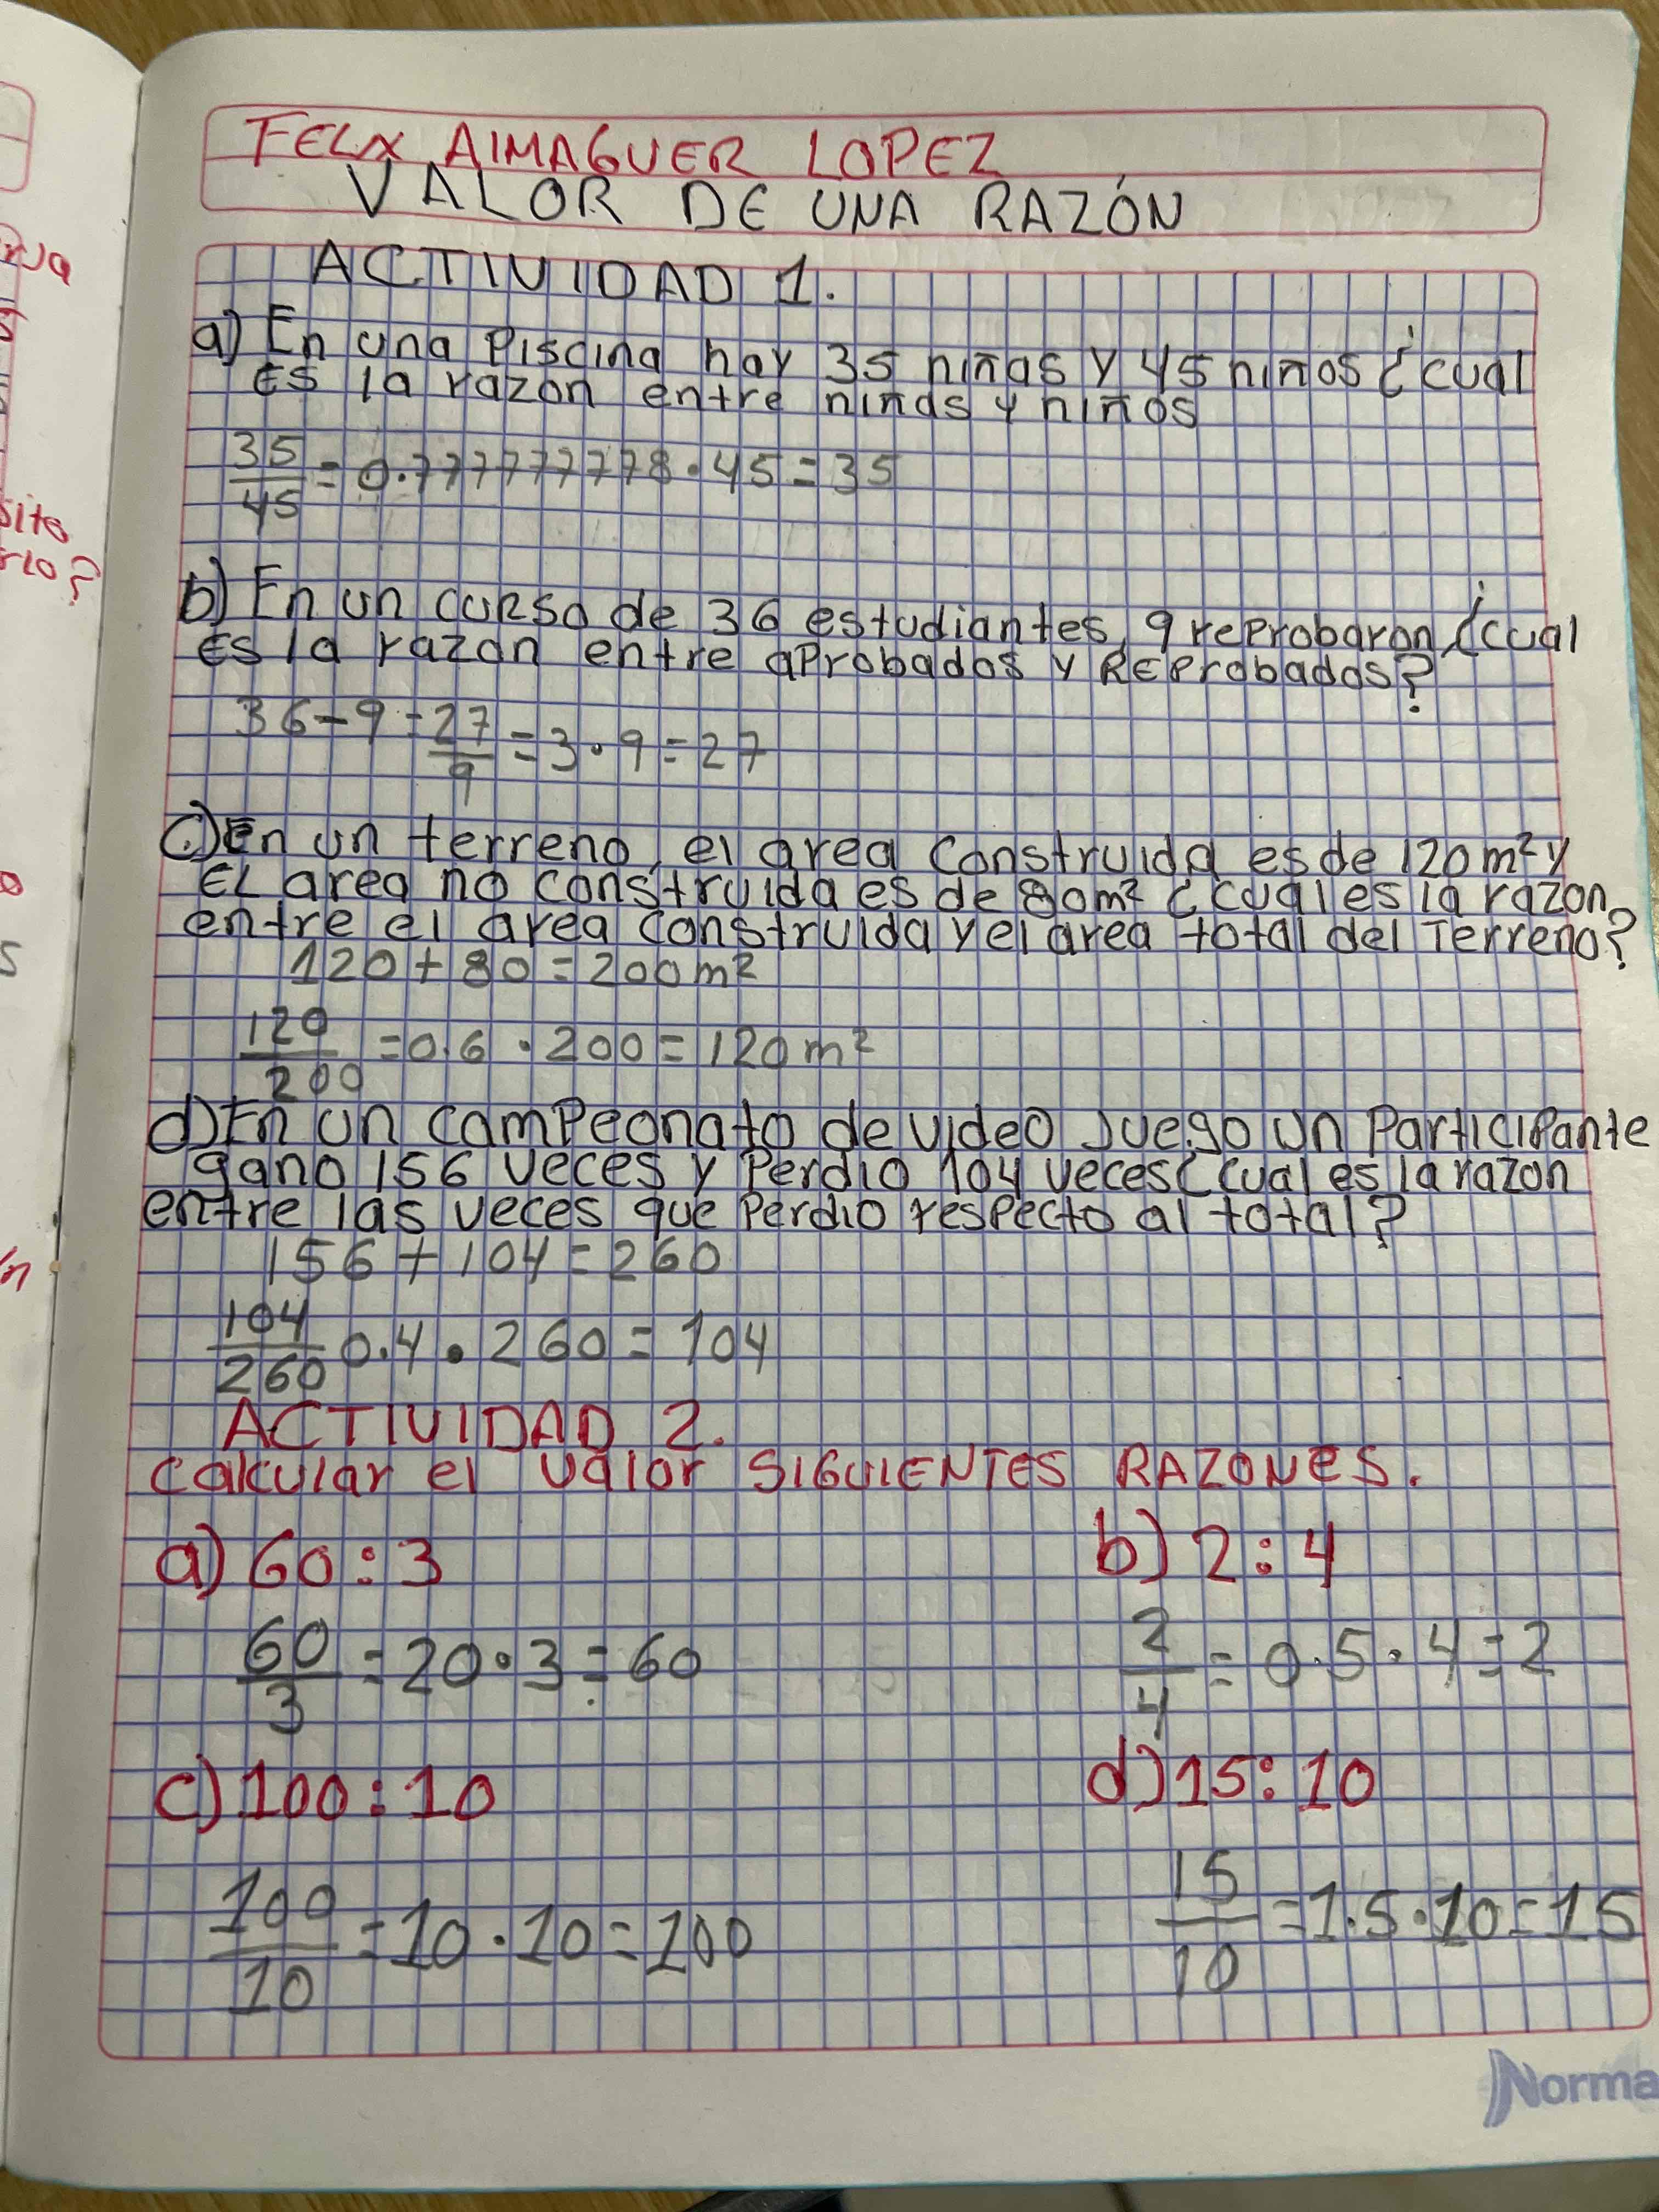 FELIX AlMAGUER LOPEZ
VALOR DE UNA RAZÓN
ACTIVIDAD 1.
a) En una Piscina hay 35 niñas y 45 niños ¿cual
ES la razon entre niñas y niños
35/45 = 0.777777778 · 45 = 35
b) En un curso de 36 estudiantes, 9 reprobaron ¿cual
ES la razon entre aprobados y REProbados?
36 - 9 = 27/9 = 3 · 9 = 27
c) En un terreno, el area construida es de 120 m² y
EL area no construida es de 80m² ¿cual es la razon
entre el area construida y el area total del Terreno?
120 + 80 = 200 m²
120/200 = 0.6 · 200 = 120 m²
d) En un campeonato de video Juego un Participante
gano 156 veces y Perdio 104 veces ¿cual es la razon
entre las veces que Perdio respecto al total?
156 + 104 = 260
104/260 0.4 · 260 = 104
ACTIVIDAD 2.
calcular el valor SIGUIENTES RAZONES.
a) 60 : 3 b) 2 : 4
60/3 = 20 · 3 = 60 2/4 = 0.5 · 4 = 2
c) 100 : 10 d) 15 : 10
100/10 = 10 · 10 = 100 15/10 = 1.5 · 10 = 15
Norma
rlo?